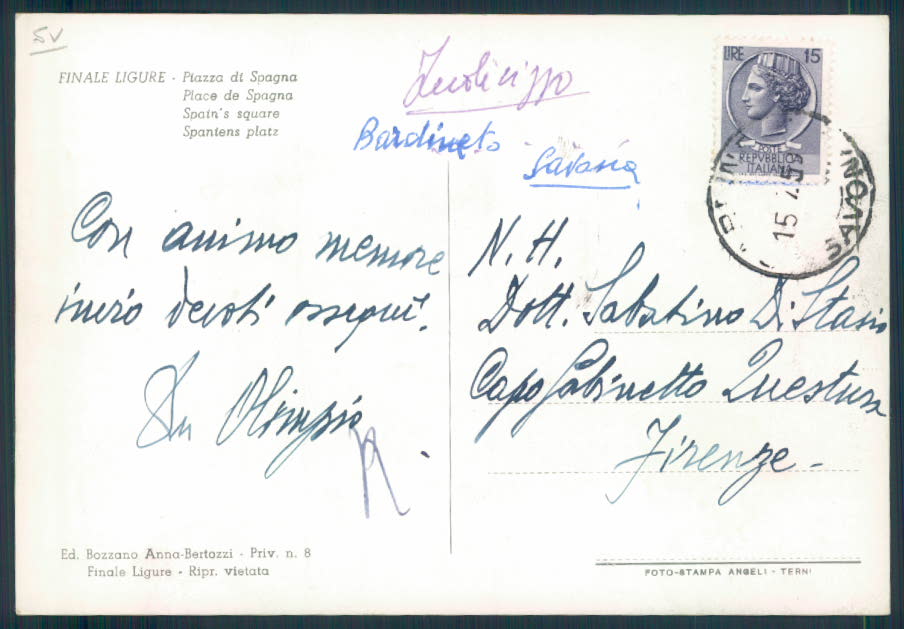 SV
FINALE LIGURE - Piazza di Spagna
Place de Spagna
Spain's square
Spantens platz
Bardineto
Savona
LIRE 15
POSTE
REPVBBLICA
ITALIANA
SAVONA
15
Con animo memore
invio devoti ossequi.
Olimpio
N. H.
Dott. Sabatino Di Stasio
Capo Gabinetto Questura
Firenze -
Ed. Bozzano Anna-Bertozzi - Priv. n. 8
Finale Ligure - Ripr. vietata
FOTO-STAMPA ANGELI - TERNI